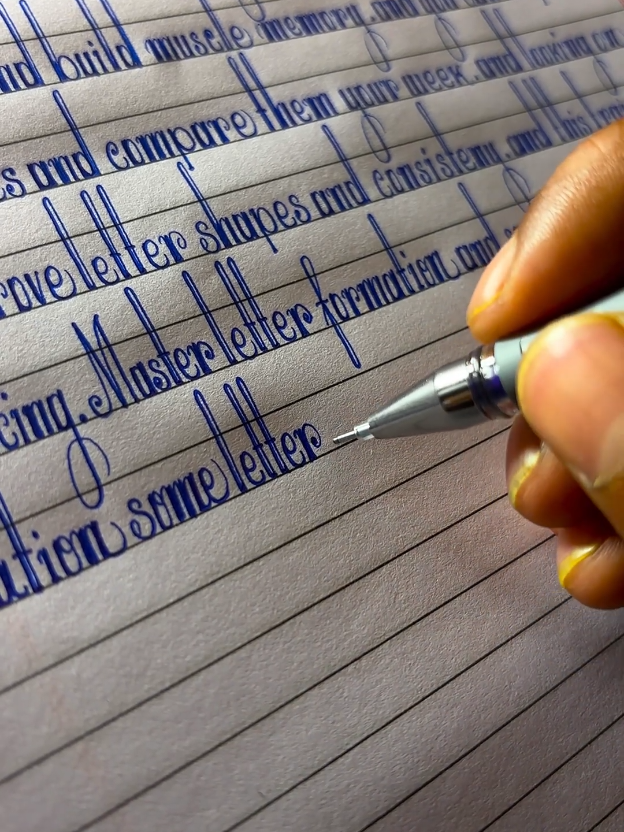 build muscle memory. and
and compare them your week. and
letter shapes and consisteny. and this
cing. Master letter formation and
ation some letter